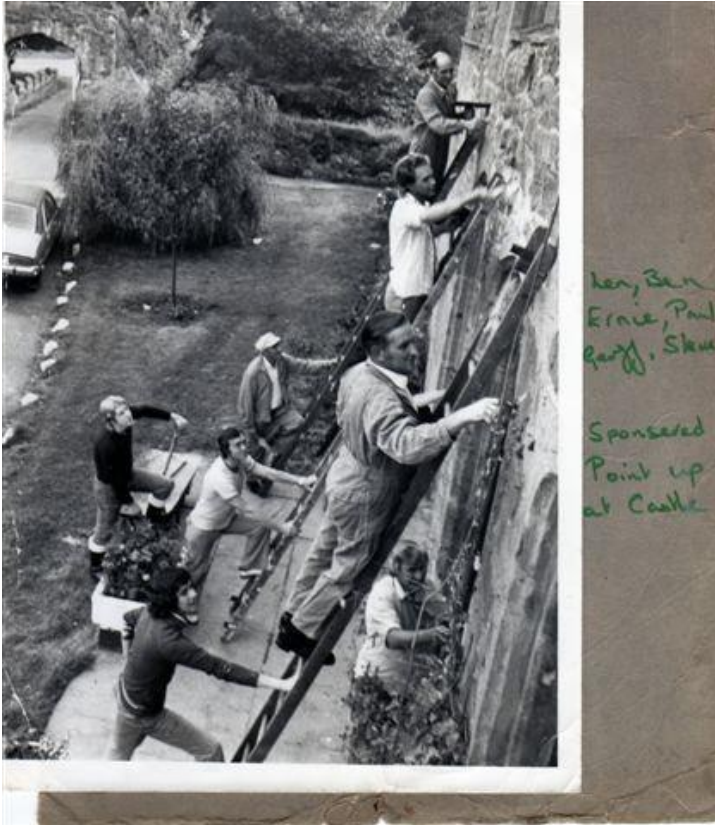 Len, Ben
Ernie, Paul
Geoff, Steve
Sponsered
Point up
at Castle